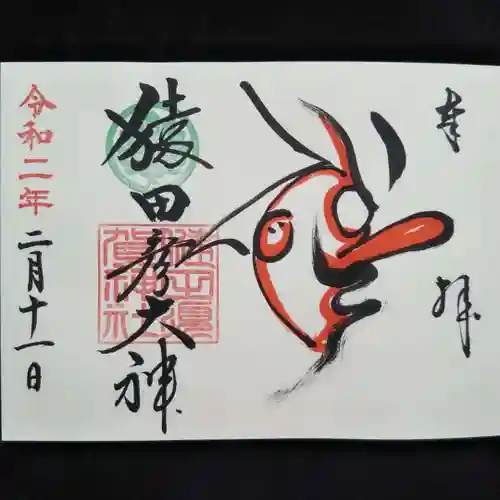 奉拝
猿田彦大神
令和二年二月十一日